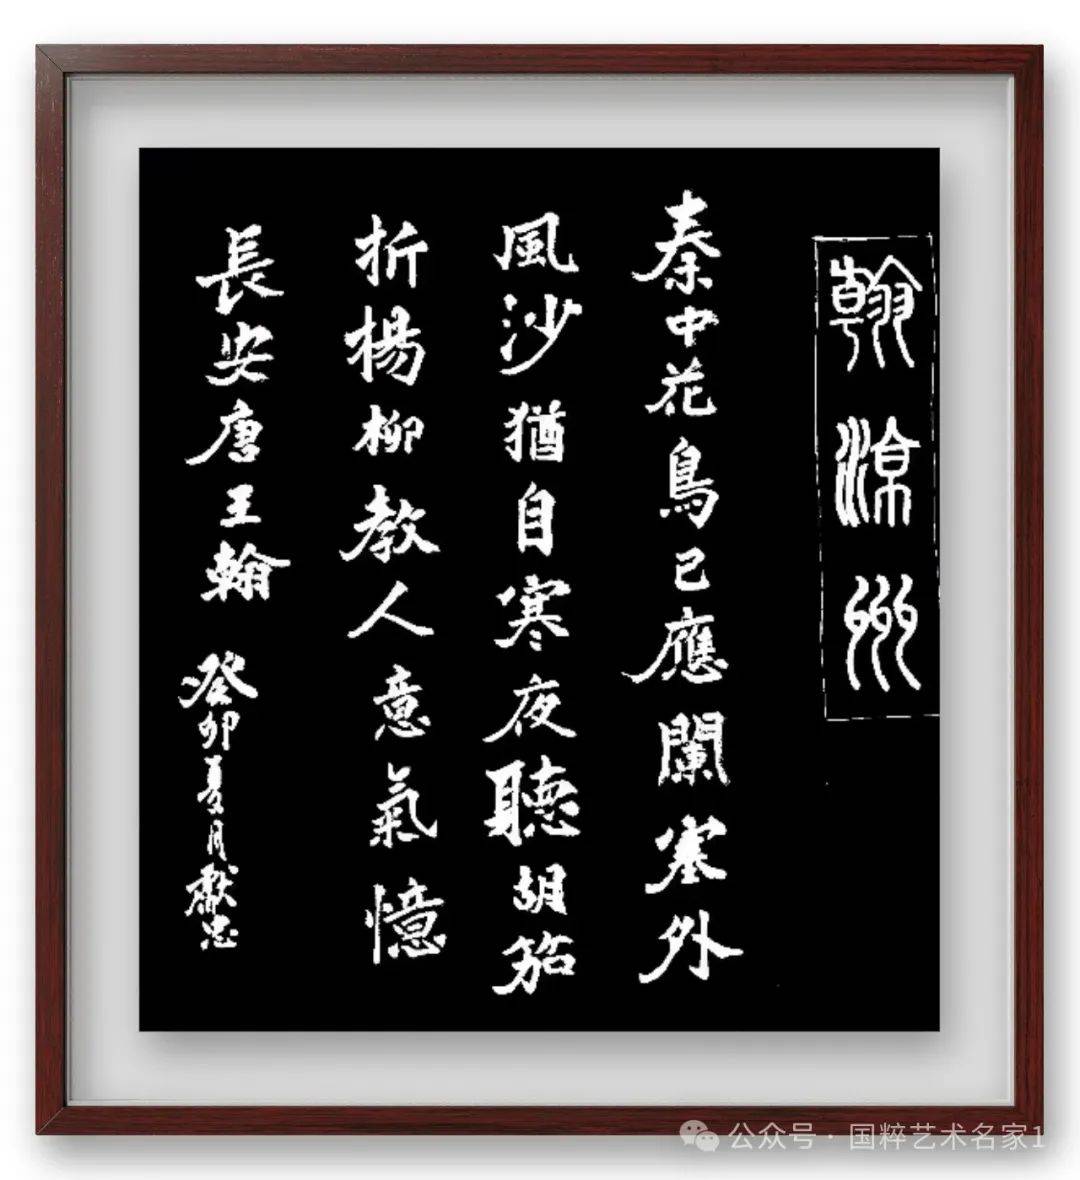 翰涼州
秦中花鳥已應闌塞外
風沙猶自寒夜聽胡笳
折楊柳教人意氣憶
長安唐王翰
癸卯夏月獻忠
公众号 · 国粹艺术名家1